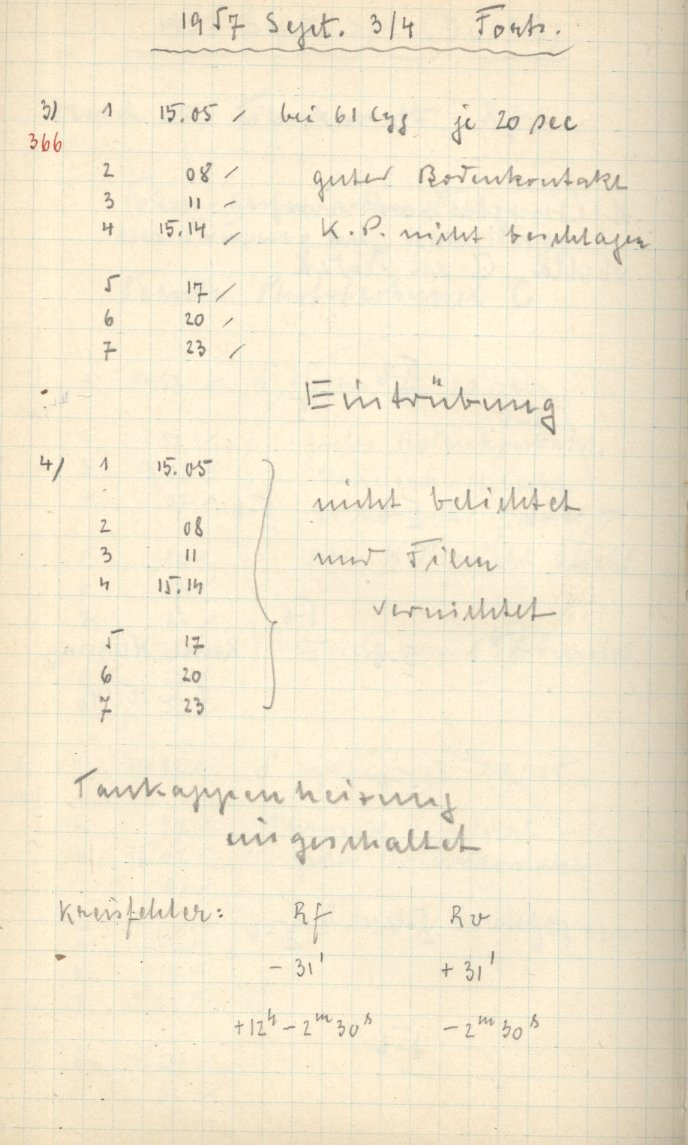 1957 Sept. 3/4 Forts.
3) 1 15.05 / bei 61 Cyg je 20 sec
366
2 08 / guter Bodenkontakt
3 11 /
4 15.14 / K.P. nicht beschlagen
5 17 /
6 20 /
7 23 /
Eintrübung
4) 1 15.05
nicht belichtet
2 08
3 11 und Film
4 15.14
vernichtet
5 17
6 20
7 23
Taukappenheizung
eingeschaltet
Kreisfehler: Rf Rv
- 31' + 31'
+12h - 2m 30s - 2m 30s